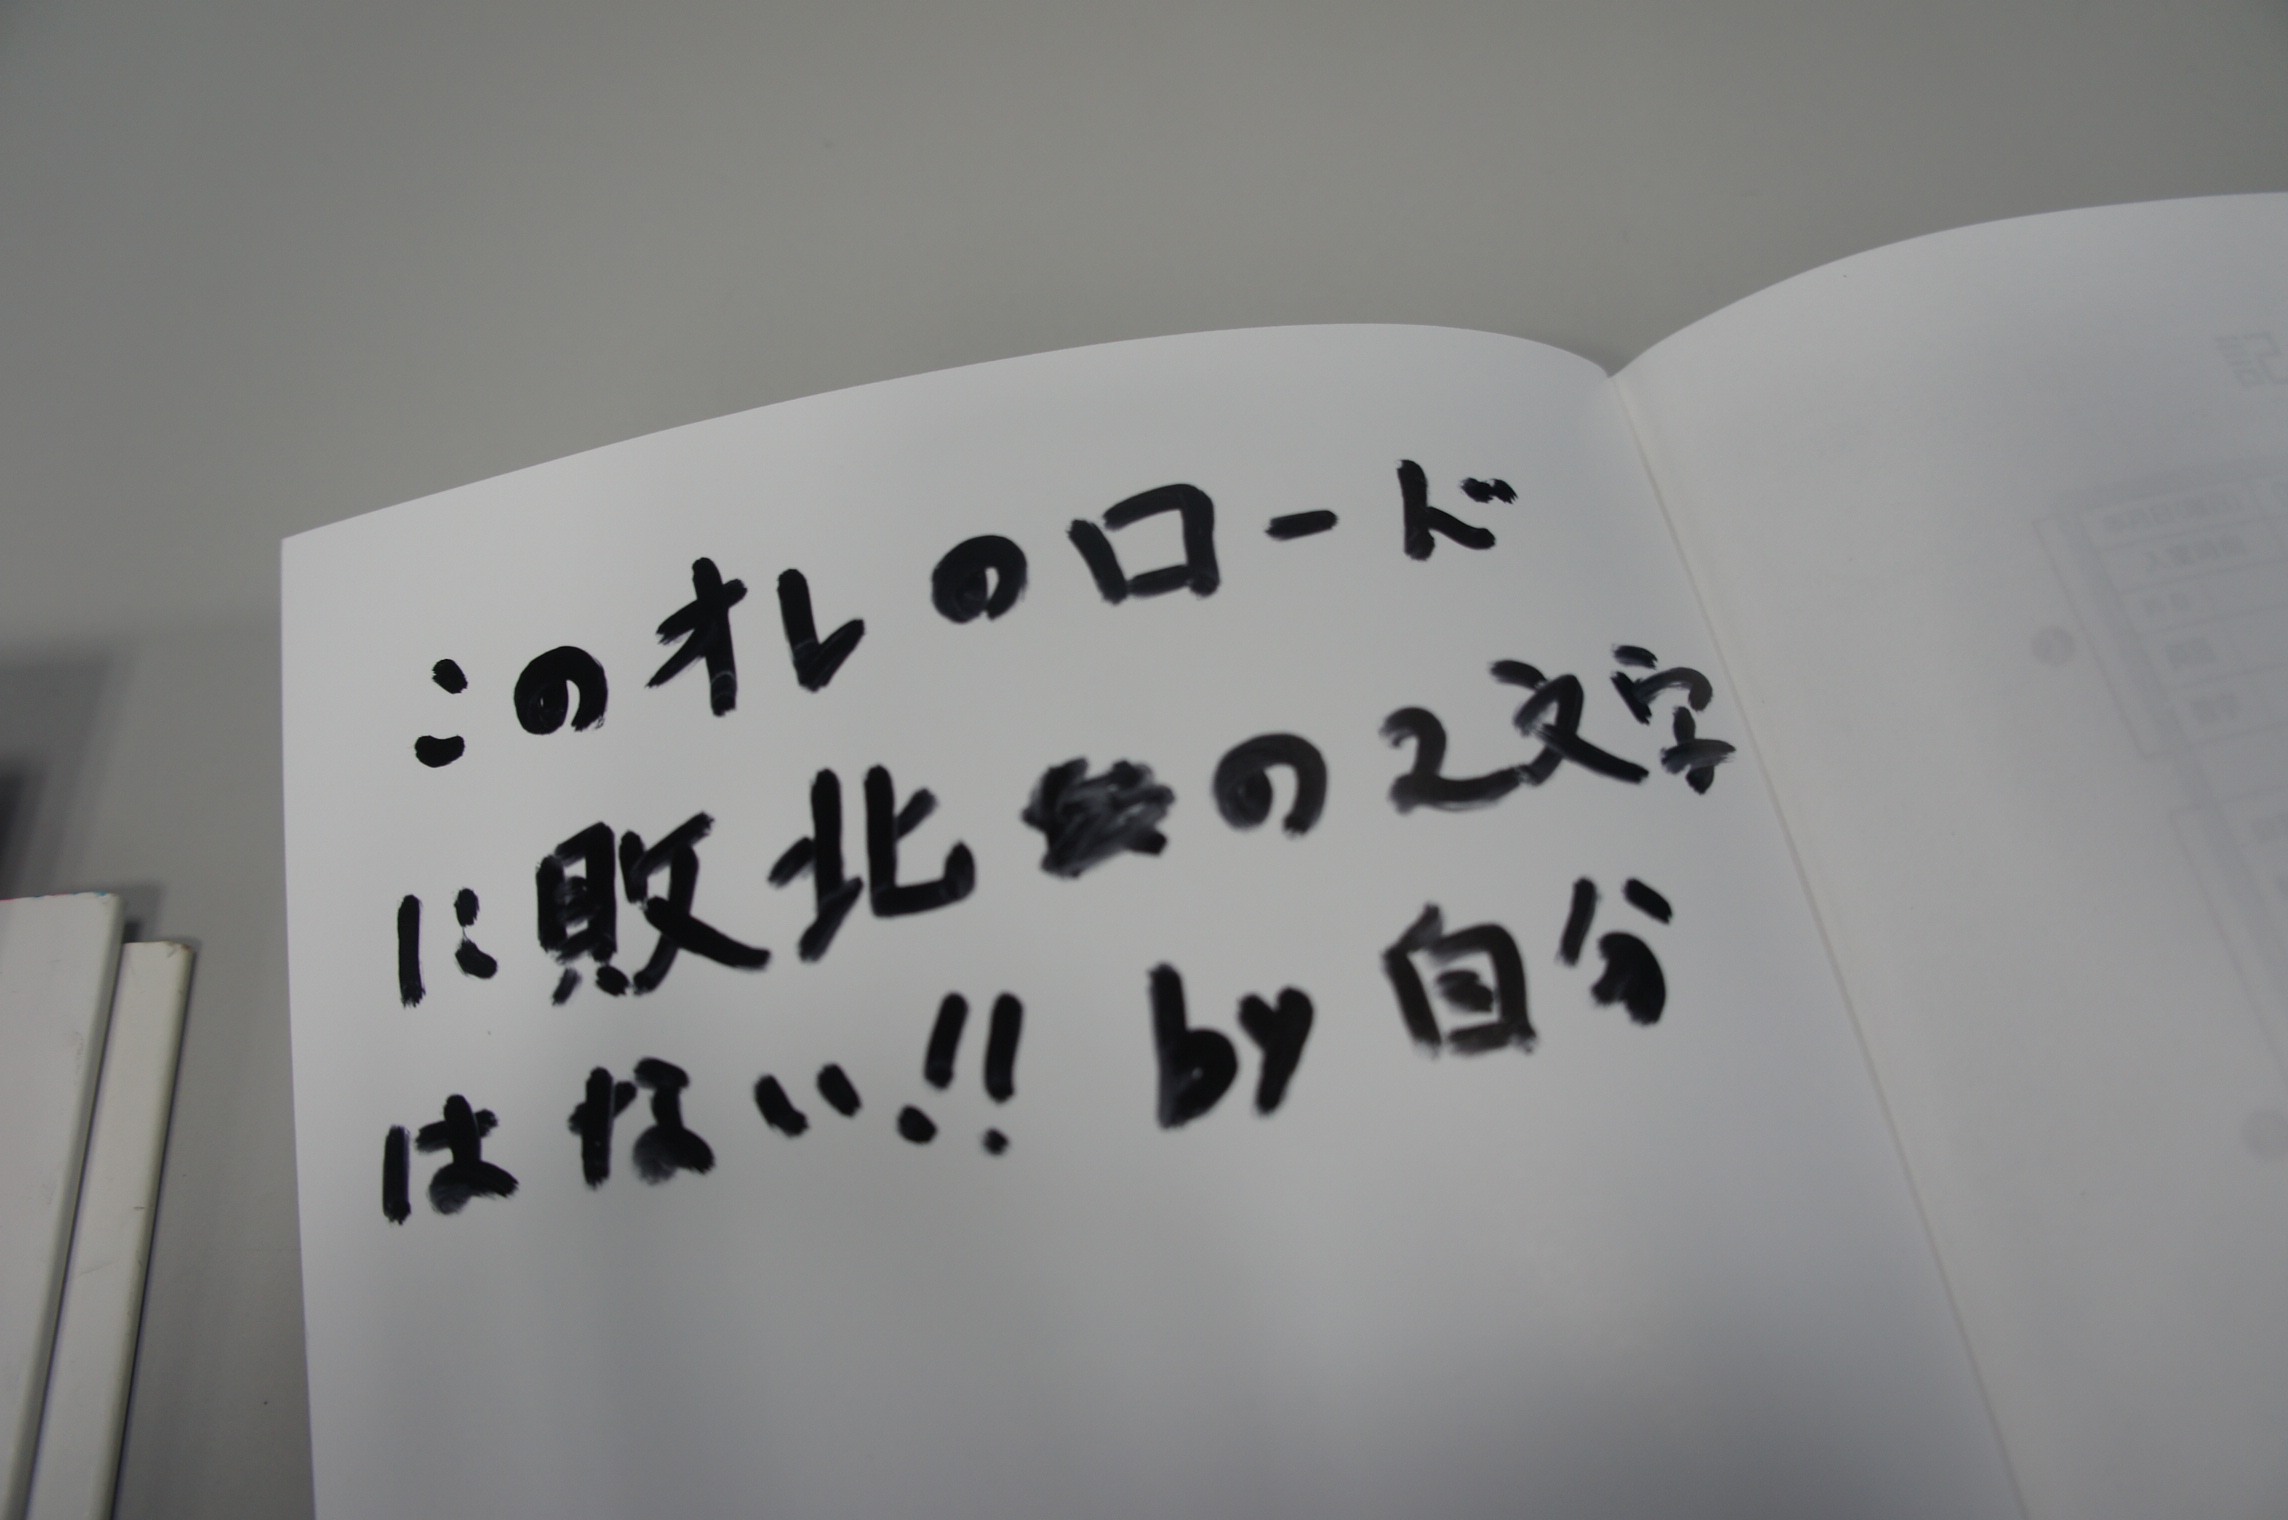 このオレのロード
に敗北の2文字
はない!! by自分